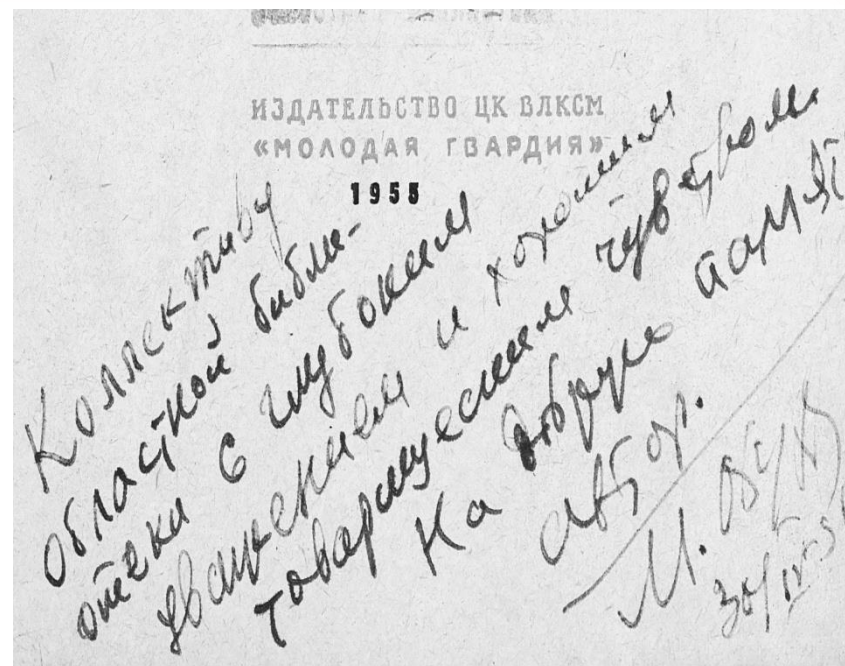 ИЗДАТЕЛЬСТВО ЦК ВЛКСМ
«МОЛОДАЯ ГВАРДИЯ»
1955
Коллективу
областной библи-
отеки с глубоким
уважением и хорошим
товарищеским чувством
На добрую память
автор.
М.
30/IV